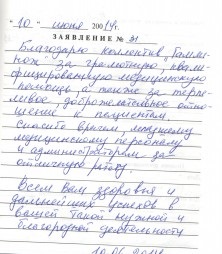 "10" июня 2001 г.
ЗАЯВЛЕНИЕ № 31
Благодарю коллектив "Гамми-
нож" за грамотную, квали-
фицированную медицинскую
помощь, а также за терпе-
ливое, доброжелательное отно-
шение к пациентам.
Спасибо врачам, младшему
медицинскому персоналу
и администраторам за
отличную работу.
Всем Вам здоровья и
дальнейших успехов в
вашей такой нужной и
благородной деятельности